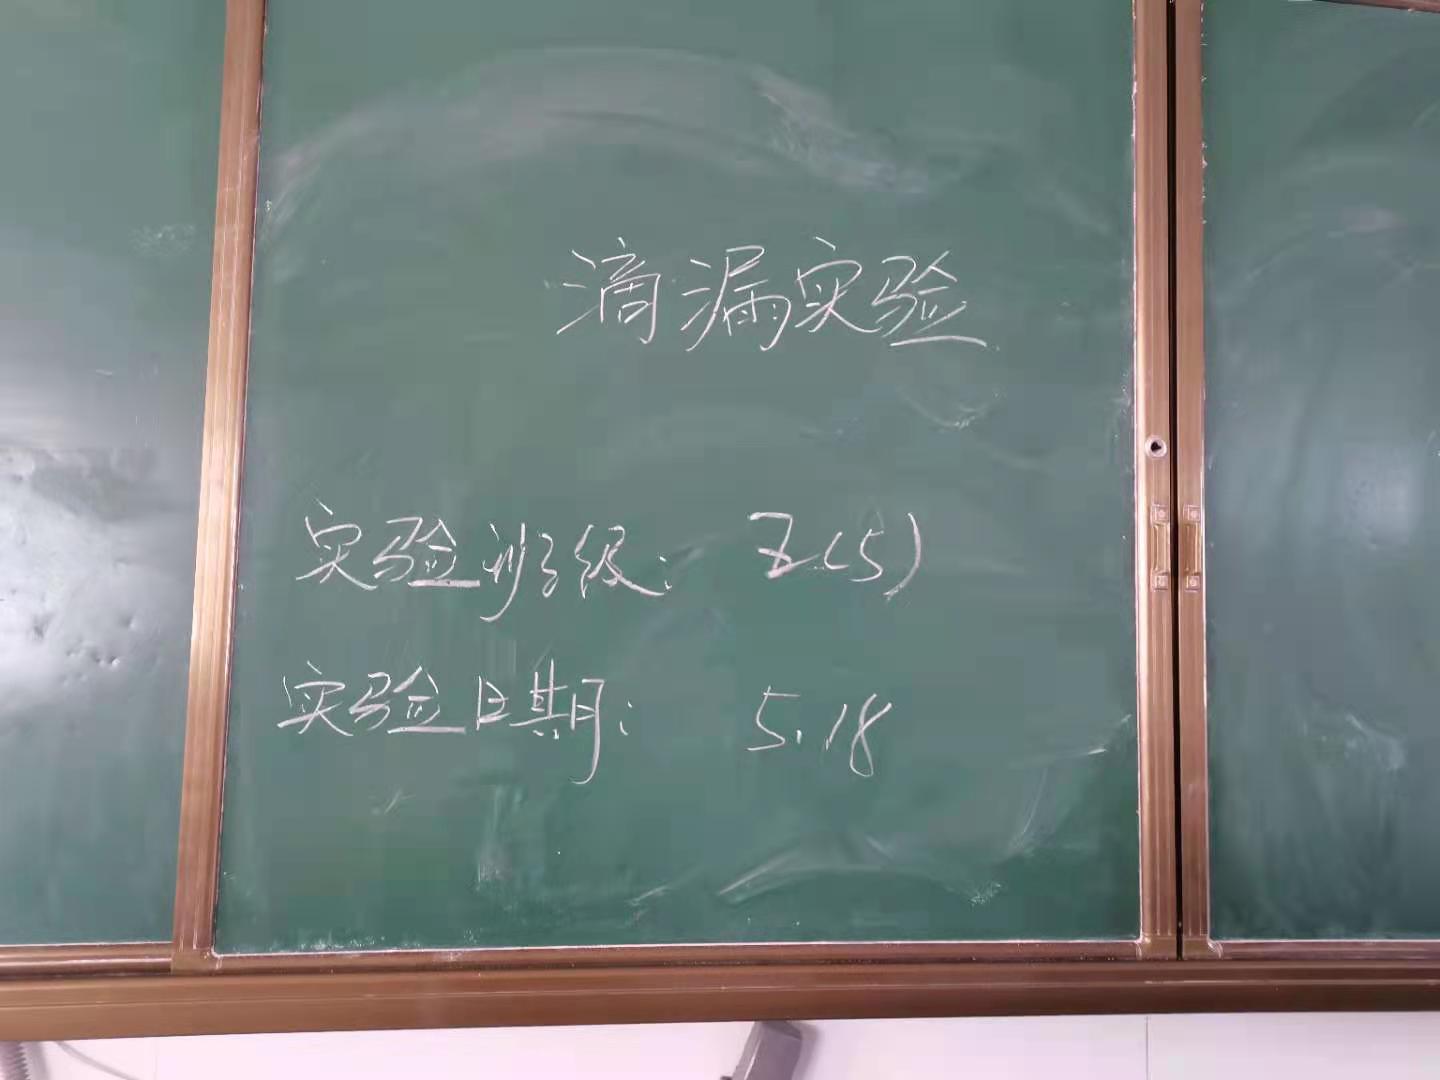 滴漏实验
实验班级： 7.(5)
实验日期： 5.18